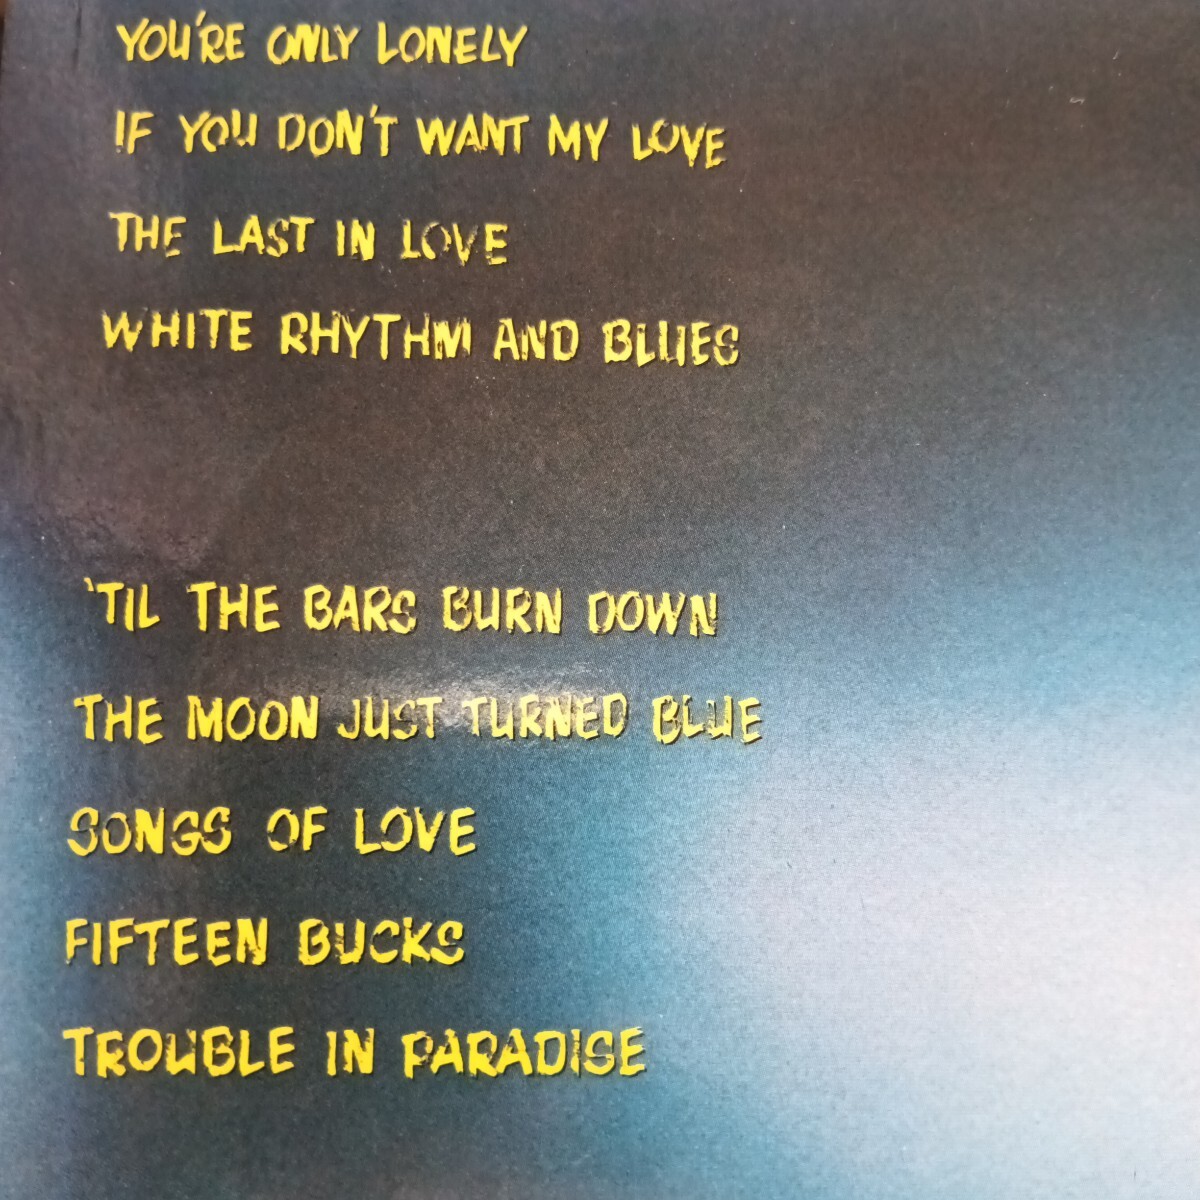 YOU'RE ONLY LONELY
IF YOU DON'T WANT MY LOVE
THE LAST IN LOVE
WHITE RHYTHM AND BLUES
'TIL THE BARS BURN DOWN
THE MOON JUST TURNED BLUE
SONGS OF LOVE
FIFTEEN BUCKS
TROUBLE IN PARADISE